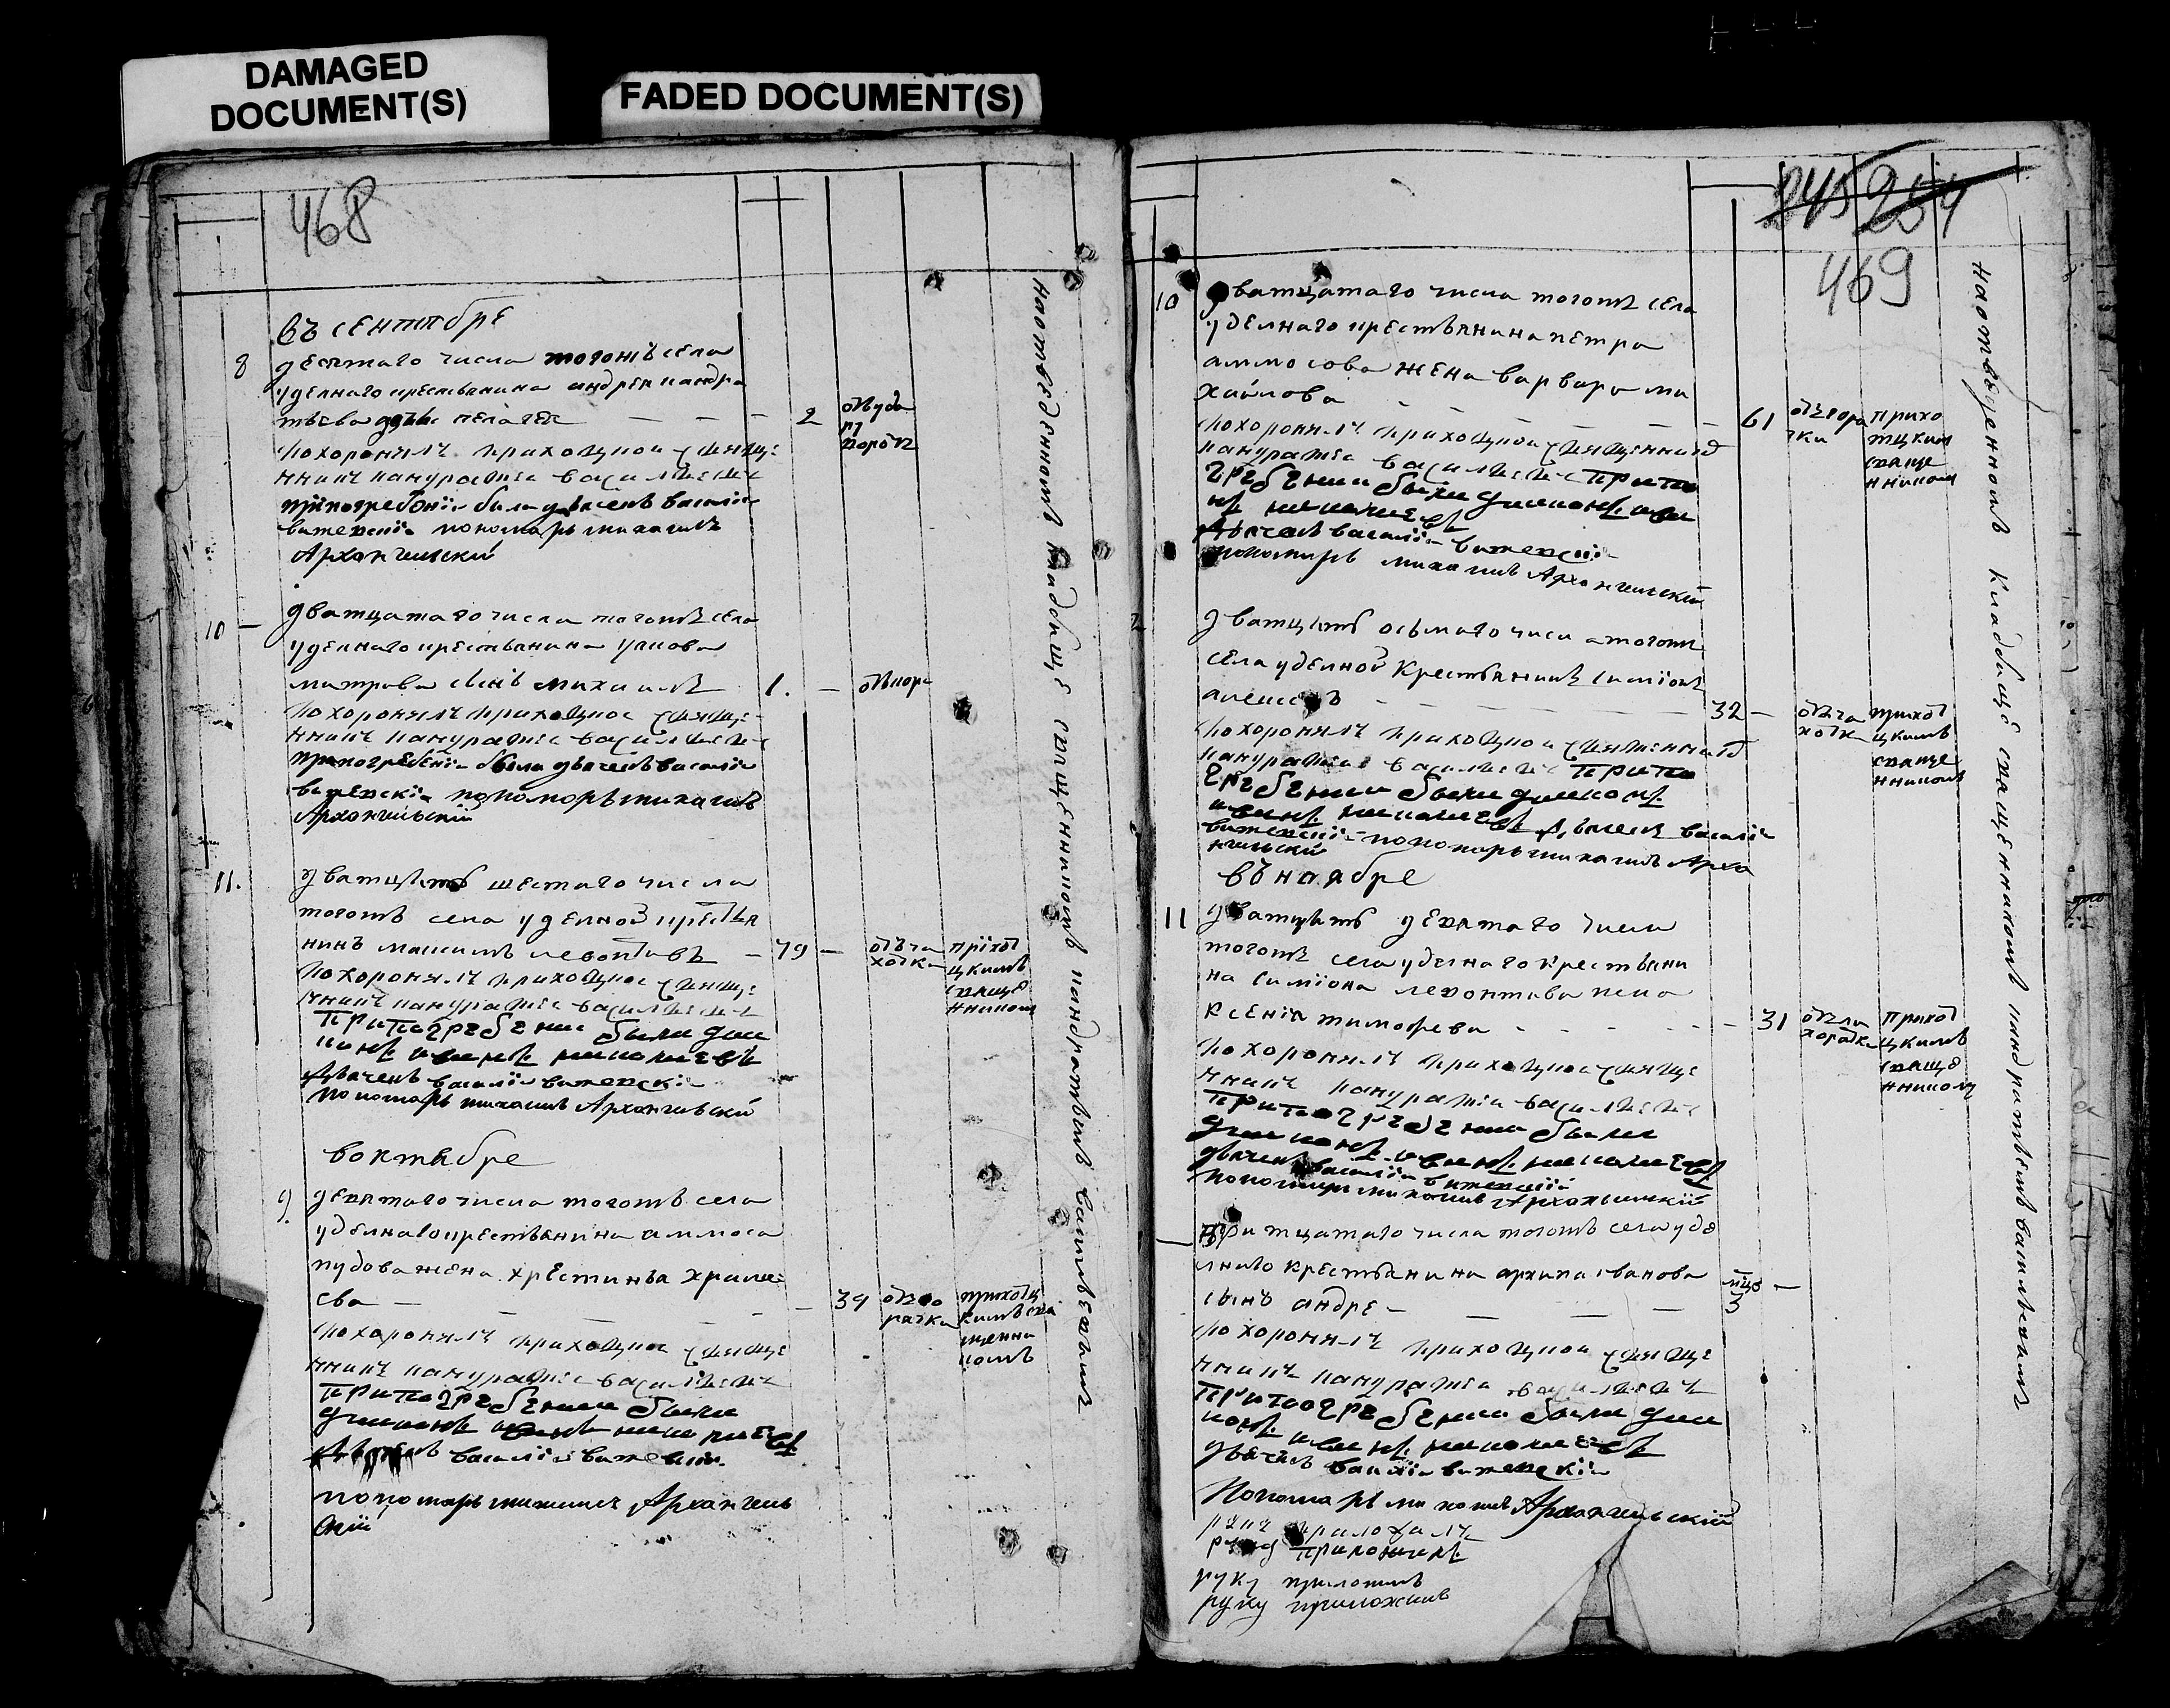 DAMAGED
DOCUMENT(S)
FADED DOCUMENT(S)
468
въ сентябре
8 десятаго числа тогожъ села
уделнаго крестьянина андрея кандра
тьева дочь пелагея 2 отъ уда
похоронялъ приходцкои священ
никъ кандратеи васильевъ
при погребении были дьячекъ васили
витевскии пономарь михаилъ
Архангилскии
10 дватцатаго числа тогожъ села
уделнаго крестьянина
митрева сынъ михаилъ 1. отъ кори
похоронялъ приходцкои священ
никъ кандратеи васильевъ
при погребении были дьячекъ васили
витевскии пономорь михаилъ
Архангильскии
11. дватцать шестаго числа
тогожъ села уделной крестья
нинъ максимъ левонтьевъ 79 отъ ча
хотки
приход
цкимъ
свяще
нником
похоронялъ приходцкои священ
никъ кандратеи васильевъ
при погребении были диа
конъ иванъ николаевъ
дьячекъ васили витевски
пономарь михаилъ Архангилскии
в октябре
9 девятаго числа тогожъ села
уделнаго крестьянина аммоса
пудова жена христинья
ева 39
приходц
кимъ свя
щенни
комъ
похоронялъ приходцкои священ
никъ кандратеи васильевъ
при погребении были
диаконъ иванъ николаевъ
дьячекъ васили витевскии
пономарь михаилъ Архангель
скии
на отведенномъ кладбище священникомъ кандратьемъ васильевымъ
245 254
469
10 дватцатаго числа тогожъ села
уделнаго крестьянина петра
аммосова жена варвара ми
хайлова 61 отъ горя
чки
прихо
тцким
свяще
нником
похоронялъ приходцкои священникъ
кандратеи васильевъ при по
гребении были диаконъ иван
николаевъ
дьячекъ васили витевскии
пономарь михаилъ Архангилскии
дватцать осьмаго числа тогожъ
села уделной крестьянинъ симионъ
алексеевъ 32 отъ ча
хотки
приход
цкимъ
свяще
нникомъ
похоронялъ приходцкои священникъ
кандратеи васильевъ при по
гребении были диаконъ
иванъ николаевъ дьячекъ васили
витевскии пономарь михаилъ Арха
нгильскии
въ наябре
11 дватцать девятаго числа
тогожъ села уделнаго крестьяни
на симиона левонтьева жена
ксения тимофеева 31 отъ ли
хорадки
приход
цкимъ
свяще
ннику
похоронялъ приходцкои священ
никъ кандратеи васильевъ
при погребении были
диаконъ иванъ николаевъ
дьячекъ васили витевскии
пономарь михаилъ Архангилскии
тритцатаго числа тогожъ села уде
лнаго крестьянина архипа иванова
сынъ андре 3
похоронялъ приходцкои священ
никъ кандратеи васильевъ
при погребении были диа
конъ иванъ николаевъ
дьячекъ васили витевски
Пономарь михаилъ Архангильскии
руку приложалъ
руку приложилъ
руку приложилъ
руку приложилъ
на отведенномъ кладбище священникомъ кандратьемъ васильевымъ